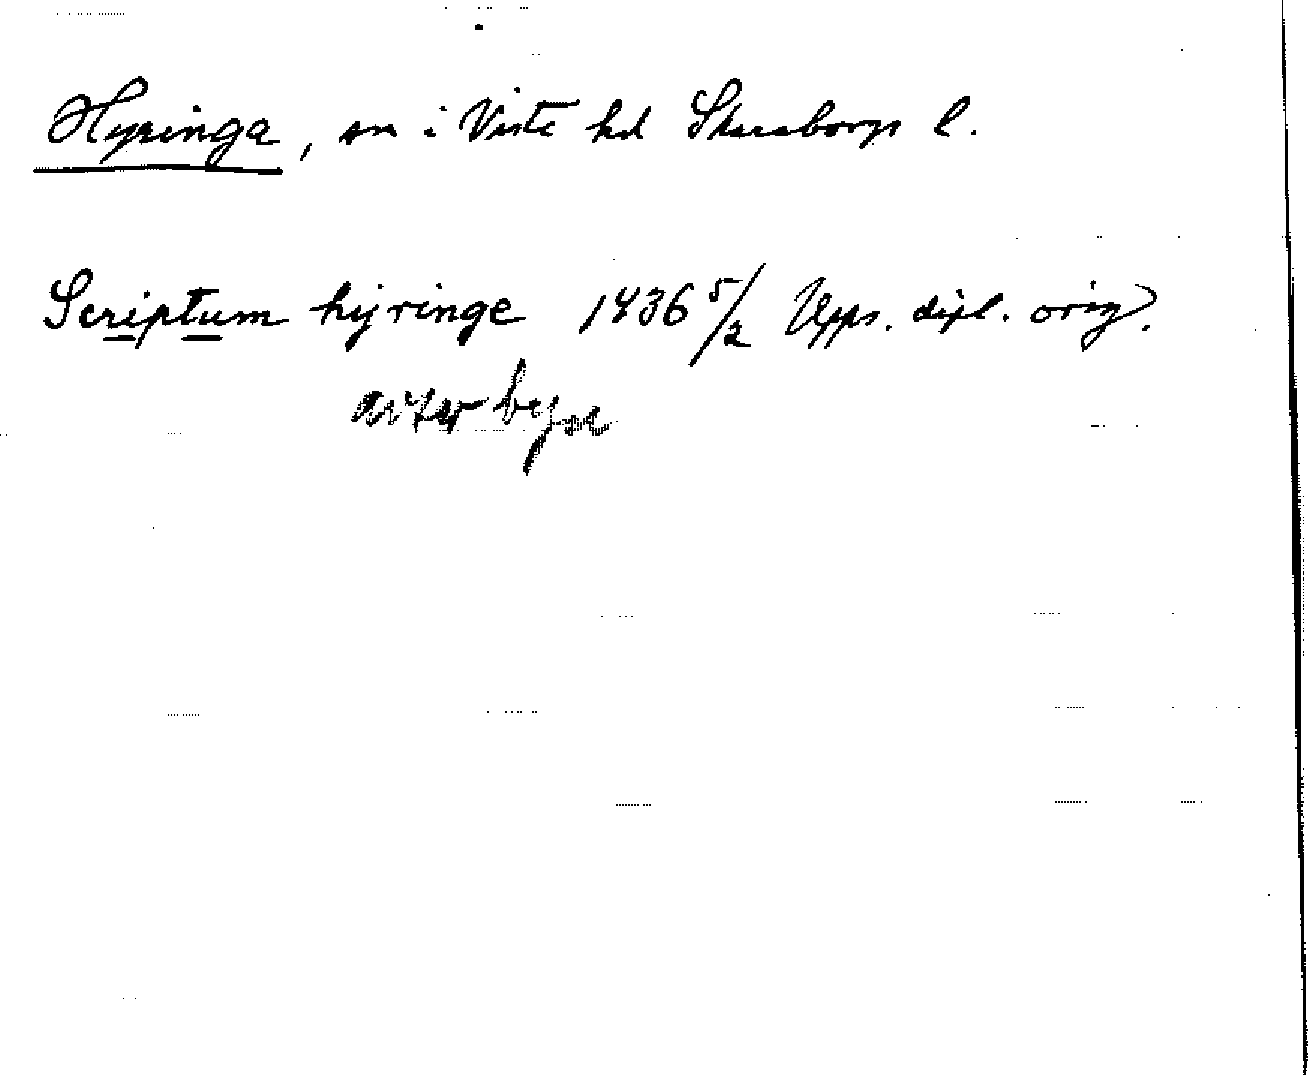 Hyringa, sn i Viste hd Skaraborgs l.
Scriptum hijringe 1436 5/2 Upps. dipl. orig.